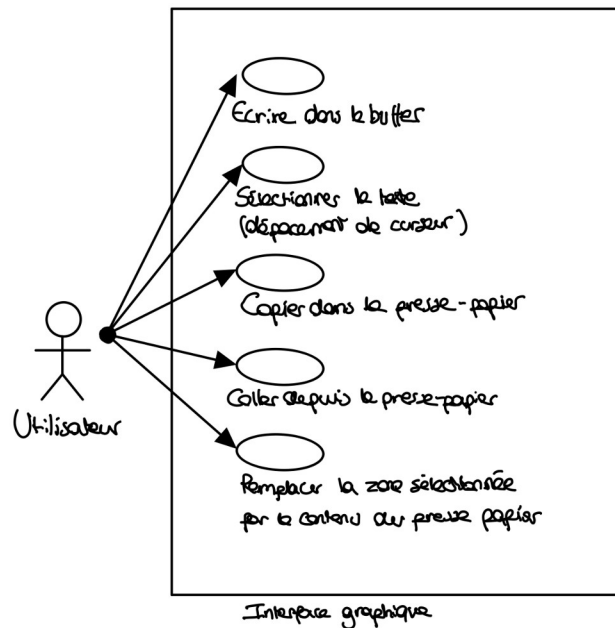 Ecrire dans le buffer
Sélectionner le texte
(déplacement de curseur)
Copier dans le presse-papier
Coller depuis le presse-papier
Utilisateur
Remplacer la zone sélectionnée
par le contenu du presse papier
Interface graphique